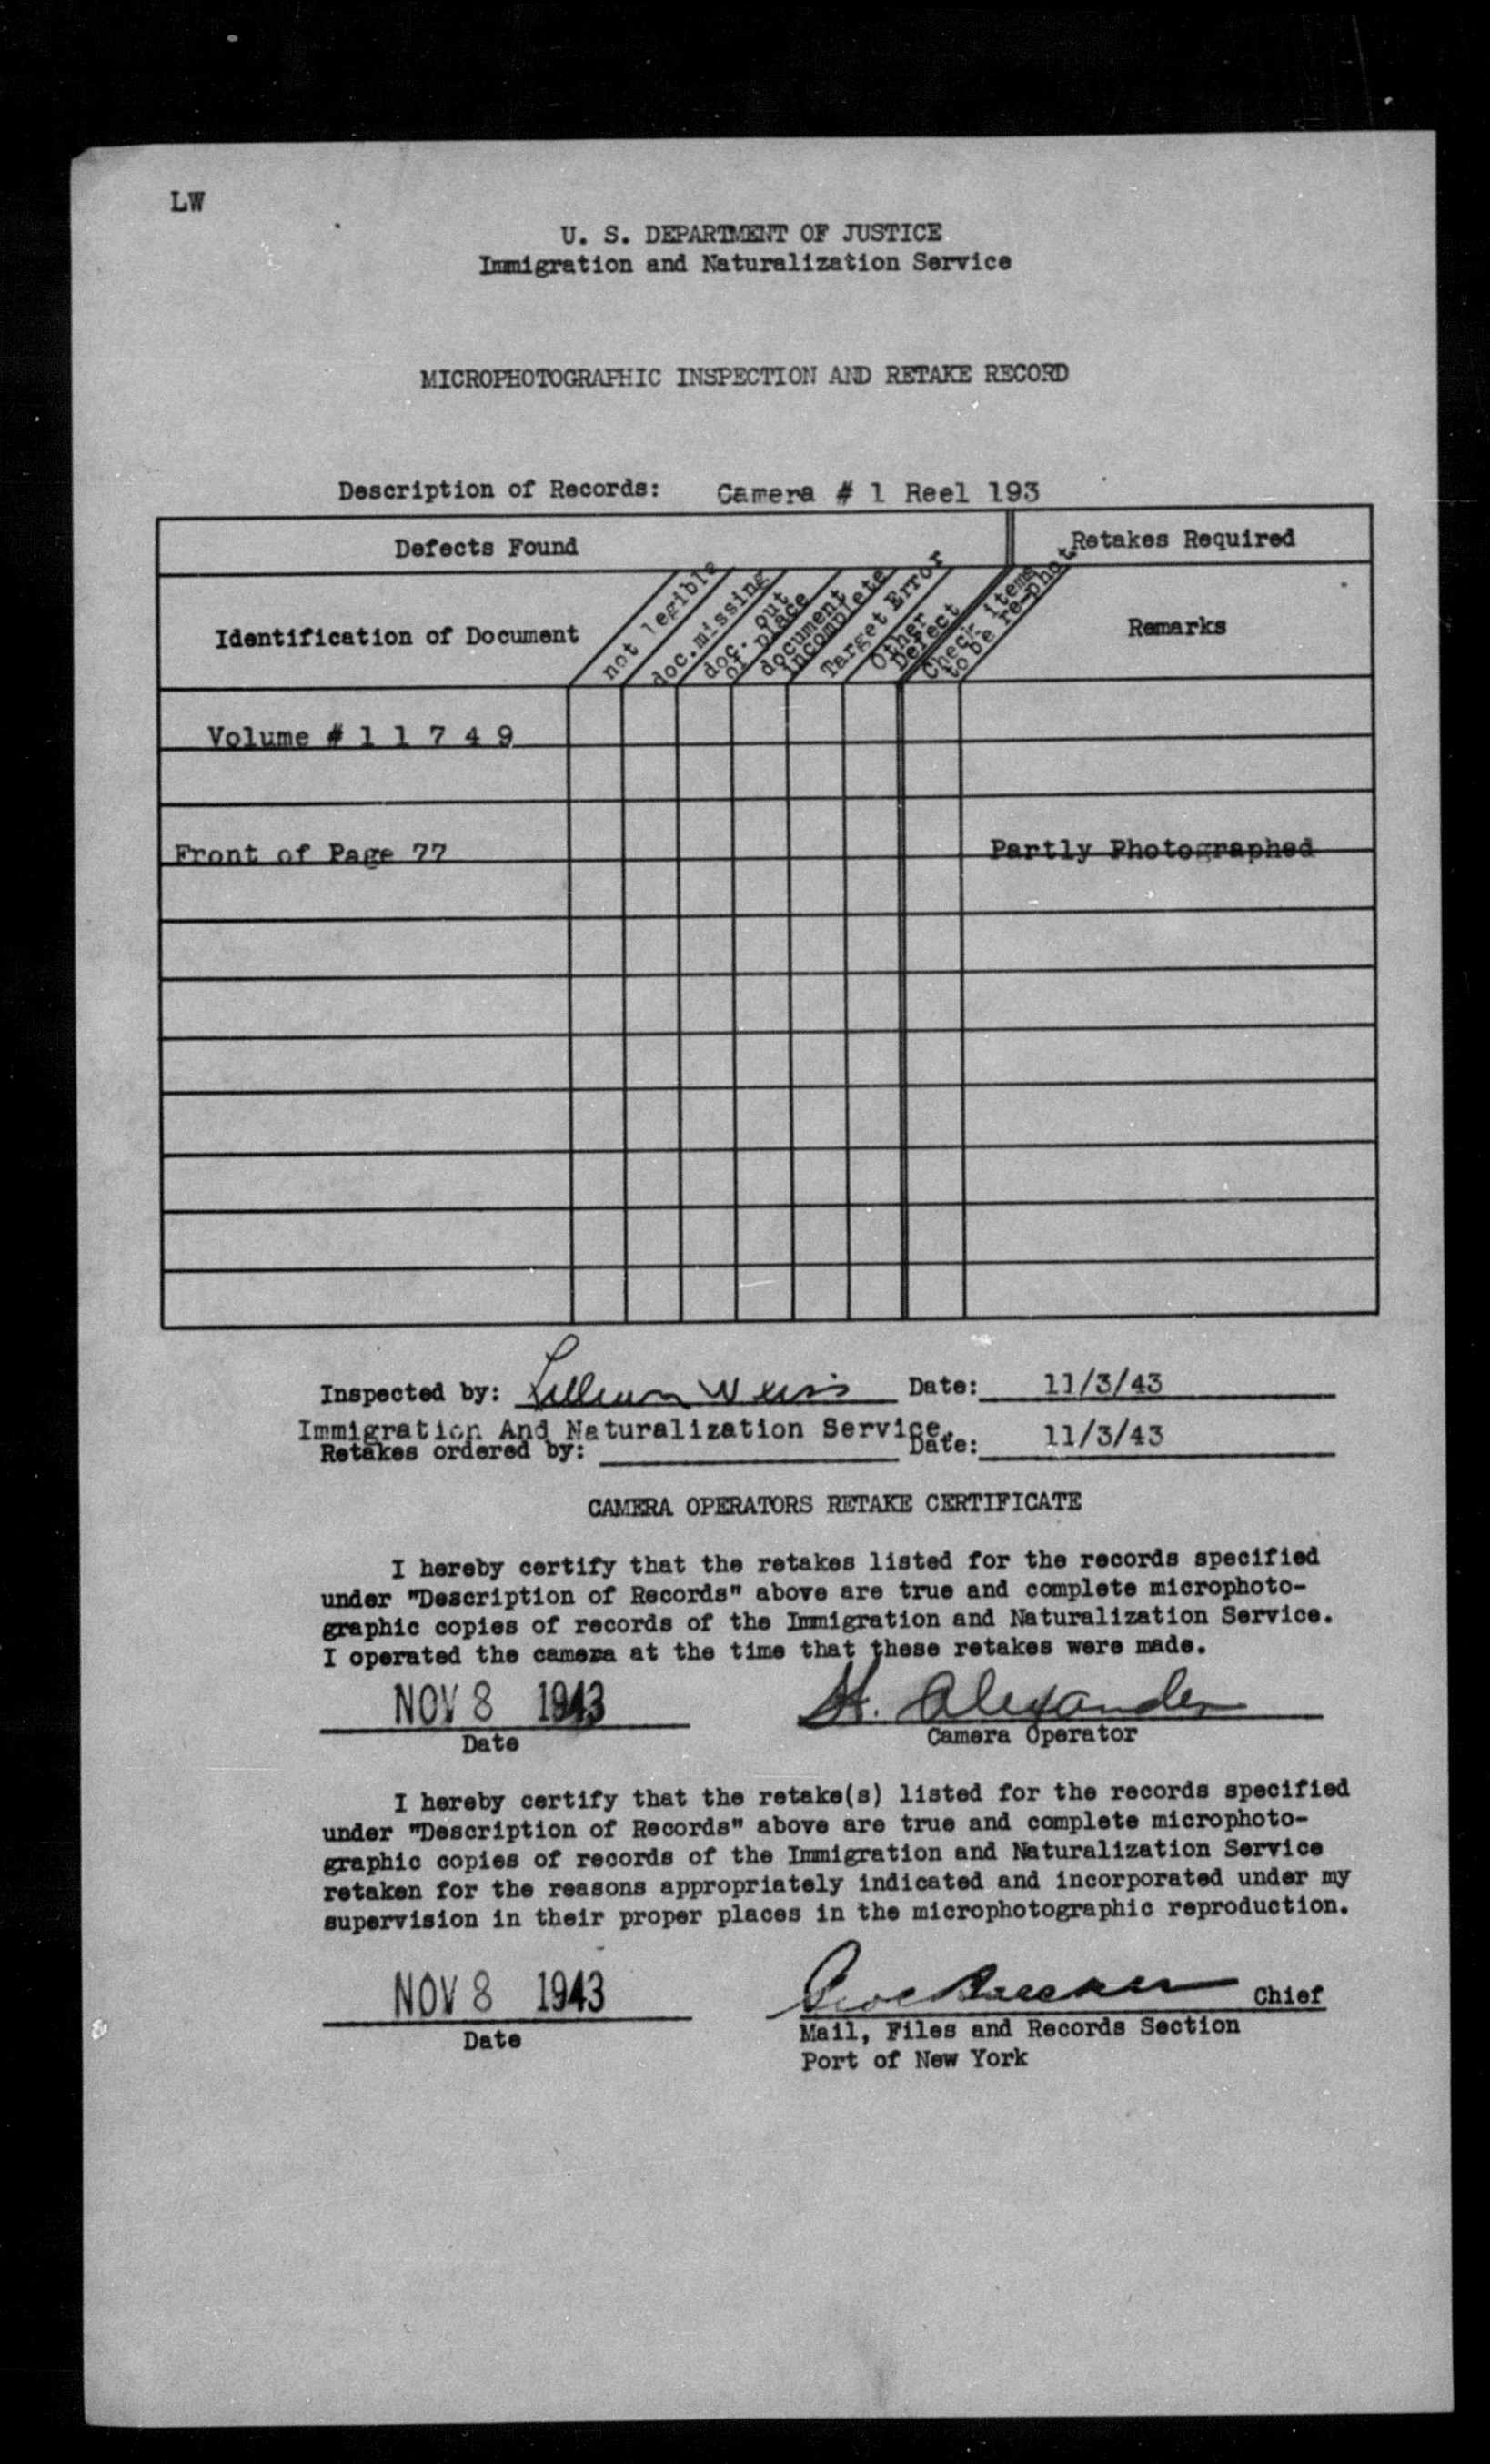 LW
U. S. DEPARTMENT OF JUSTICE
Immigration and Naturalization Service
MICROPHOTOGRAPHIC INSPECTION AND RETAKE RECORD
Description of Records: Camera # 1 Reel 193
Defects Found
Retakes Required
Identification of Document
not legible
doc.missing
doc. out
of place
document
incomplete
Target Error
Other
Defect
Check items
to be re-phot.
Remarks
Volume # 1 1 7 4 9
Front of Page 77
Partly Photographed
Inspected by: Lillian Weiss Date: 11/3/43
Immigration And Naturalization Service.
Retakes ordered by: Date: 11/3/43
CAMERA OPERATORS RETAKE CERTIFICATE
I hereby certify that the retakes listed for the records specified
under "Description of Records" above are true and complete microphoto-
graphic copies of records of the Immigration and Naturalization Service.
I operated the camera at the time that these retakes were made.
NOV 8 1943 H. Alexander
Date Camera Operator
I hereby certify that the retake(s) listed for the records specified
under "Description of Records" above are true and complete microphoto-
graphic copies of records of the Immigration and Naturalization Service
retaken for the reasons appropriately indicated and incorporated under my
supervision in their proper places in the microphotographic reproduction.
NOV 8 1943 Chief
Date Mail, Files and Records Section
Port of New York